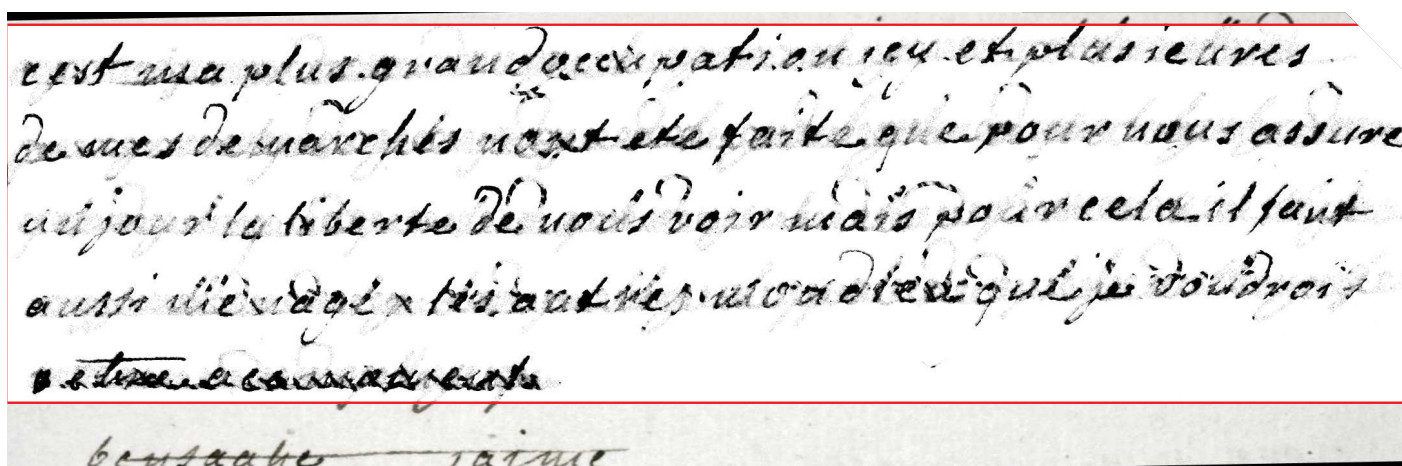 cest ma plus grand occupation icy et plusieures
de mes demarches nont ete faite que pour nous assure
un jour la liberte de nous voir mais pour cela il faut
aussi menagé les autres mon dieu que je voudrois